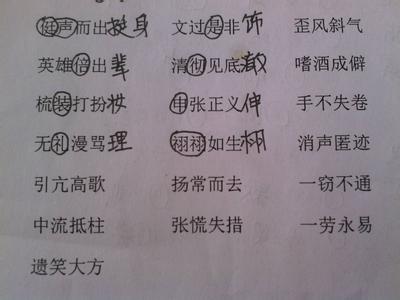 侹声而出挺身 文过是非饰 歪风斜气
英雄倍出辈 清彻见底澈 嗜酒成僻
梳装打扮妆 申张正义伸 手不失卷
无礼漫骂理 祤祤如生栩 消声匿迹
引亢高歌 扬常而去 一窃不通
中流抵柱 张慌失措 一劳永易
遗笑大方